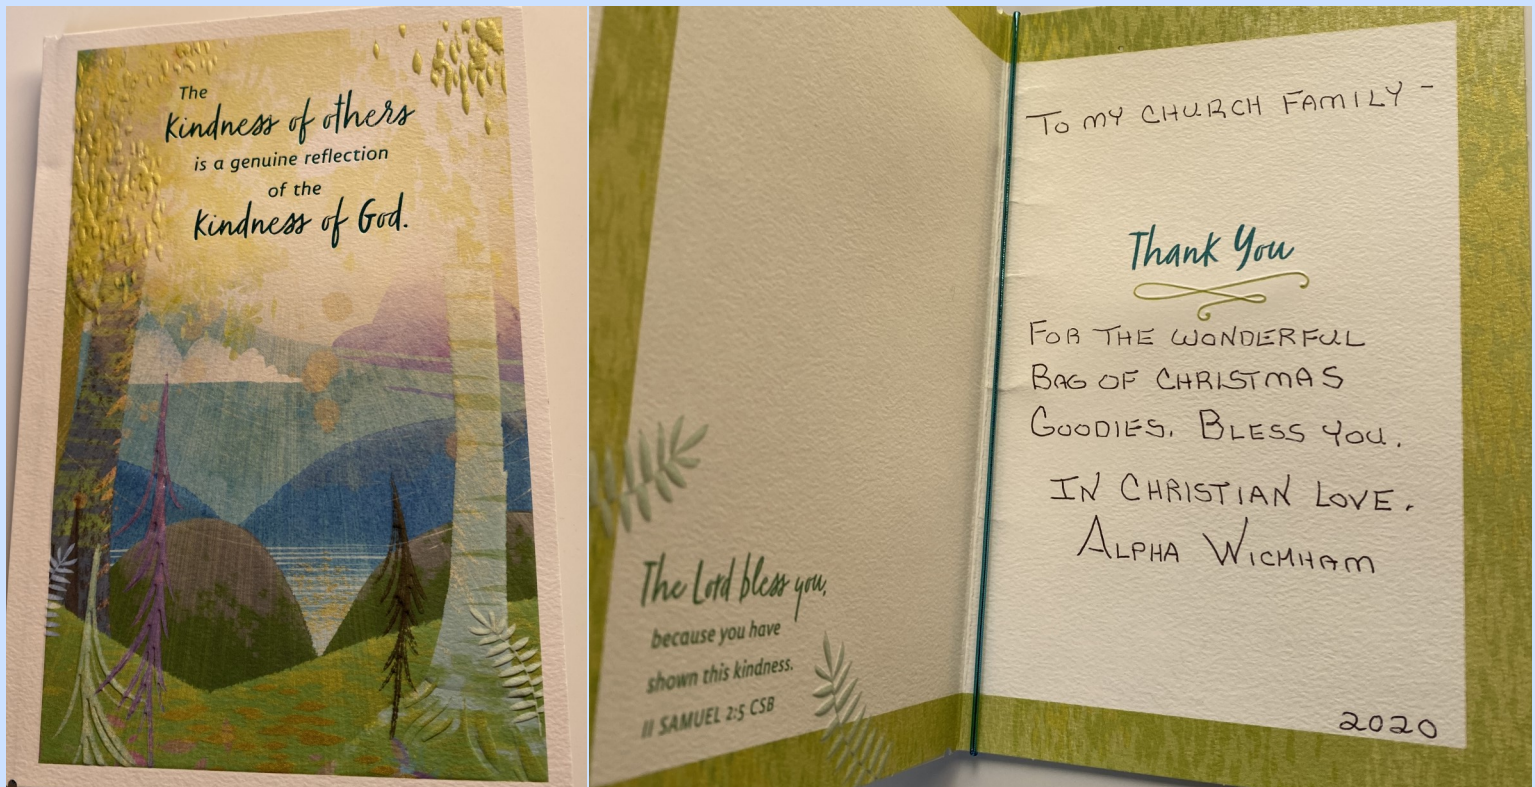 The
Kindness of others
is a genuine reflection
of the
Kindness of God.
The Lord bless you,
because you have
shown this kindness.
II SAMUEL 2:5 CSB
TO MY CHURCH FAMILY -
Thank You
FOR THE WONDERFUL
BAG OF CHRISTMAS
GOODIES. BLESS YOU.
IN CHRISTIAN LOVE.
ALPHA WICKHAM
2020